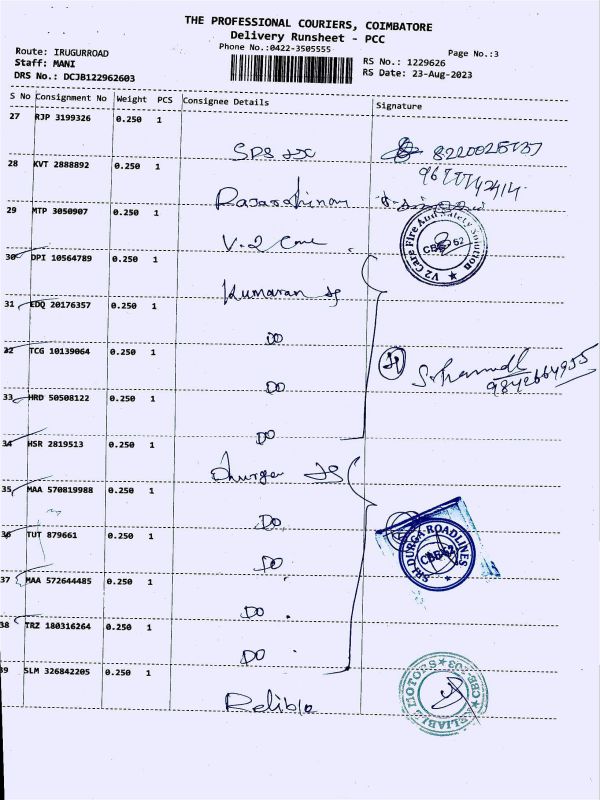 THE PROFESSIONAL COURIERS, COIMBATORE
Delivery Runsheet - PCC
Phone No.:0422-3505555
Page No.:3
Route: IRUGURROAD
Staff: MANI
DRS No.: DCJB122962603
RS No.: 1229626
RS Date: 23-Aug-2023
S No Consignment No Weight PCS Consignee Details Signature
27 RJP 3199326 0.250 1
28 KVT 2888892 0.250 1
29 MTP 3050907 0.250 1
V-2 Care
V2 Care Fire And Safety Solution
CBE-62
30 DPI 10564789 0.250 1
Kumaran
31 EDQ 20176357 0.250 1
DO
32 TCG 10139064 0.250 1
DO
9842664955
33 HRD 50508122 0.250 1
DO
34 HSR 2819513 0.250 1
Durga
35 MAA 570819988 0.250 1
DO
SRI DURGA ROADLINES
CBE-62
36 TUT 879661 0.250 1
DO
37 MAA 572644485 0.250 1
DO
38 TRZ 180316264 0.250 1
DO
39 SLM 326842205 0.250 1
Relible
RELIABLE MOTORS